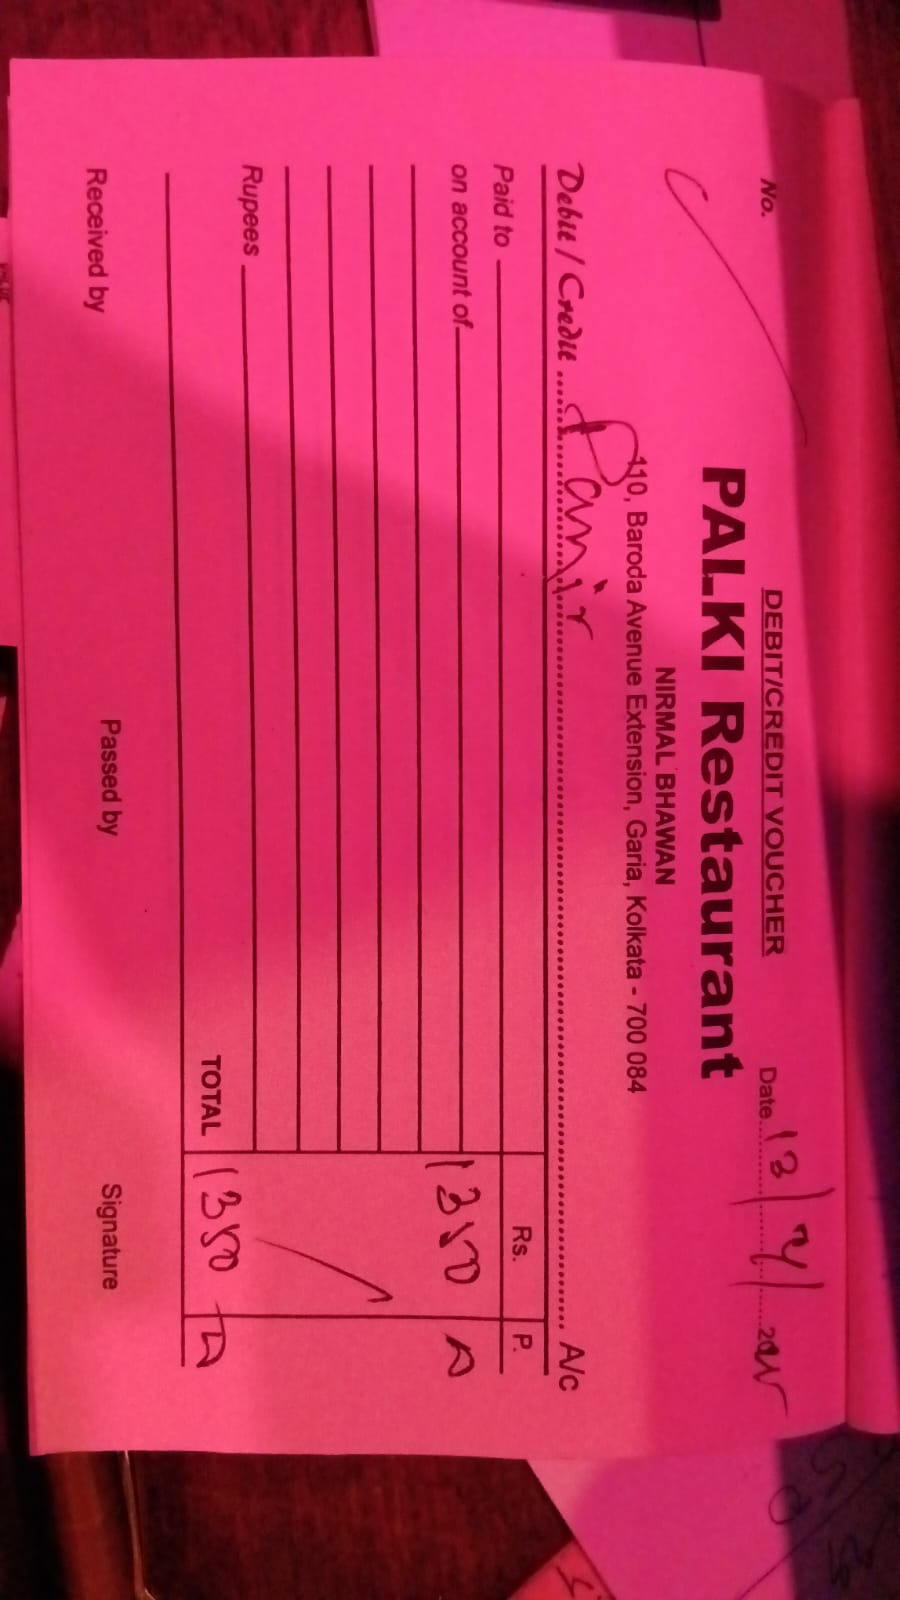 No.
DEBIT/CREDIT VOUCHER
Date 13/
PALKI Restaurant
NIRMAL BHAWAN
110, Baroda Avenue Extension, Garia, Kolkata - 700 084
Debit / Credit Panir A/c
Paid to Rs. P.
on account of 1350
Rupees
TOTAL 1350
Received by Passed by Signature